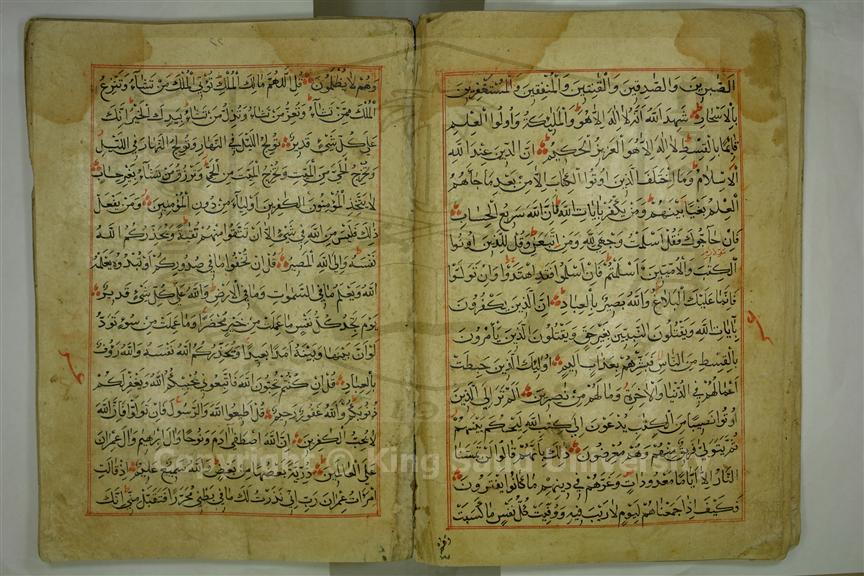 الصّٰبرين والصّٰدقين والقٰنتين والمنفقين والمستغفرين
بالاسحار شهد الله انه لا اله الا هو والملٰئكة واولوا العلم
قائما بالقسط لا اله الا هو العزيز الحكيم ان الدين عند الله
الاسلام وما اختلف الذين اوتوا الكتاب الا من بعد ما جاءهم
العلم بغيا بينهم ومن يكفر بايات الله فان الله سريع الحساب
فان حاجوك فقل اسلمت وجهي لله ومن اتبعن وقل للذين اوتوا
الكتٰب والاميين ءاسلمتم فان اسلموا فقد اهتدوا وان تولوا
فانما عليك البلاغ والله بصير بالعباد ان الذين يكفرون
بايات الله ويقتلون النبيين بغير حق ويقتلون الذين يأمرون
بالقسط من الناس فبشرهم بعذاب اليم اولٰئك الذين حبطت
اعمالهم في الدنيا والاخرة وما لهم من نٰصرين الم تر الى الذين
اوتوا نصيبا من الكتٰب يدعون الى كتٰب الله ليحكم بينهم
ثم يتولى فريق منهم وهم معرضون ذلك بانهم قالوا لن تمسنا
النار الا اياما معدودات وغرهم في دينهم ما كانوا يفترون
فكيف اذا جمعناهم ليوم لا ريب فيه ووفيت كل نفس ما كسبت
وهم لا يظلمون قل اللهم مالك الملك تؤتي الملك من تشاء وتنزع
الملك ممن تشاء وتعز من تشاء وتذل من تشاء بيدك الخير انك
على كل شئ قدير تولج الليل في النهار وتولج النهار في الليل
وتخرج الحي من الميت وتخرج الميت من الحي وترزق من تشاء بغير حساب
لا يتخذ المؤمنون الكٰفرين اولياء من دون المؤمنين ومن يفعل
ذلك فليس من الله في شئ الا ان تتقوا منهم تقية ويحذركم الله
نفسه والى الله المصير قل ان تخفوا ما في صدوركم او تبدوه يعلمه
الله ويعلم ما في السمٰوات وما في الارض والله على كل شئ قدير
يوم تجد كل نفس ما عملت من خير محضرا وما عملت من سوء تود
لو ان بينها وبينه امدا بعيدا ويحذركم الله نفسه والله رؤف
بالعباد قل ان كنتم تحبون الله فاتبعوني يحببكم الله ويغفر لكم
ذنوبكم والله غفور رحيم قل اطيعوا الله والرسول فان تولوا فان الله
لا يحب الكٰفرين ان الله اصطفى ادم ونوحا وال ابرهيم وال عمران
على العالمين ذرية بعضها من بعض والله سميع عليم اذ قالت
امرات عمران رب اني نذرت لك ما في بطني محررا فتقبل مني انك
Copyright © King Saud University